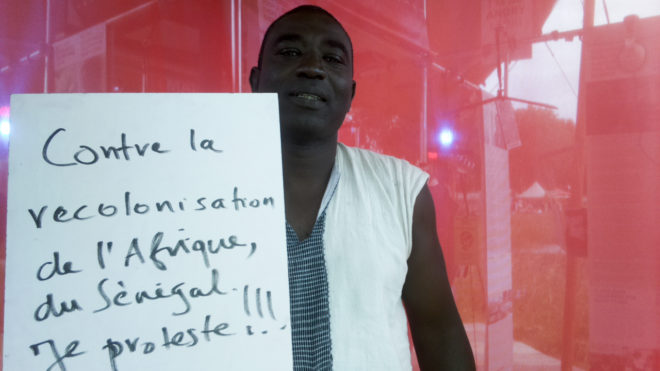 Contre la
recolonisation
de l'Afrique,
du Sénégal.
Je proteste!!!